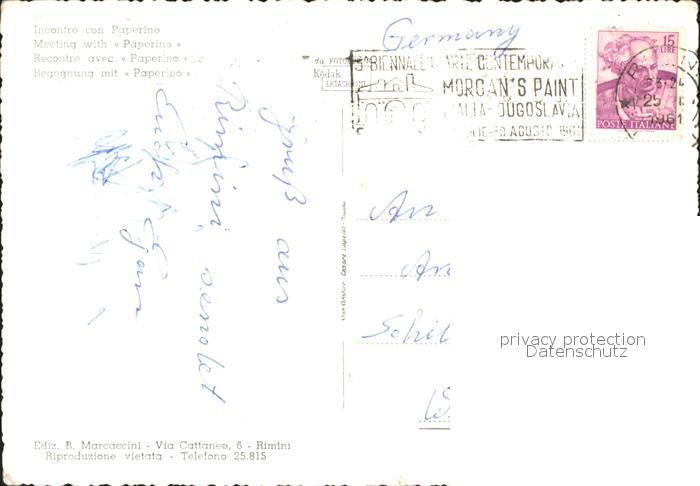 Incontro con Paperino
Meeting with «Paperino»
Recontre avec «Paperino»
Begegnung mit «Paperino»
da FOTO
Kodak
EKTACHROME
Germany
BIENNALE ARTE CONTEMPORA
MORGAN'S PAINT
ITALIA-JUGOSLAVIA
LIO-30 AGOSTO 1961
15
LIRE
25
1961
POSTE ITALIANE
Gruß aus
Rimini, sendet
Fam
An
Schil
privacy protection
Datenschutz
Ediz. B. Marcaccini - Via Cattaneo, 6 - Rimini
Riproduzione vietata - Telefono 25.815